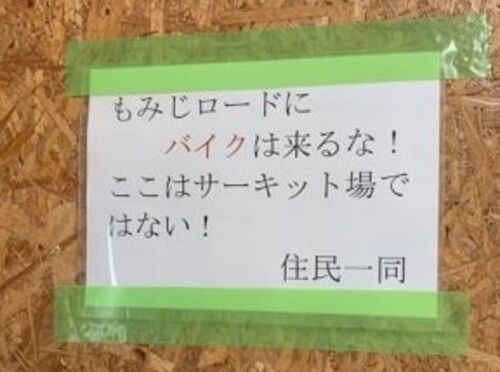 もみじロードに
バイクは来るな！
ここはサーキット場で
はない！
住民一同